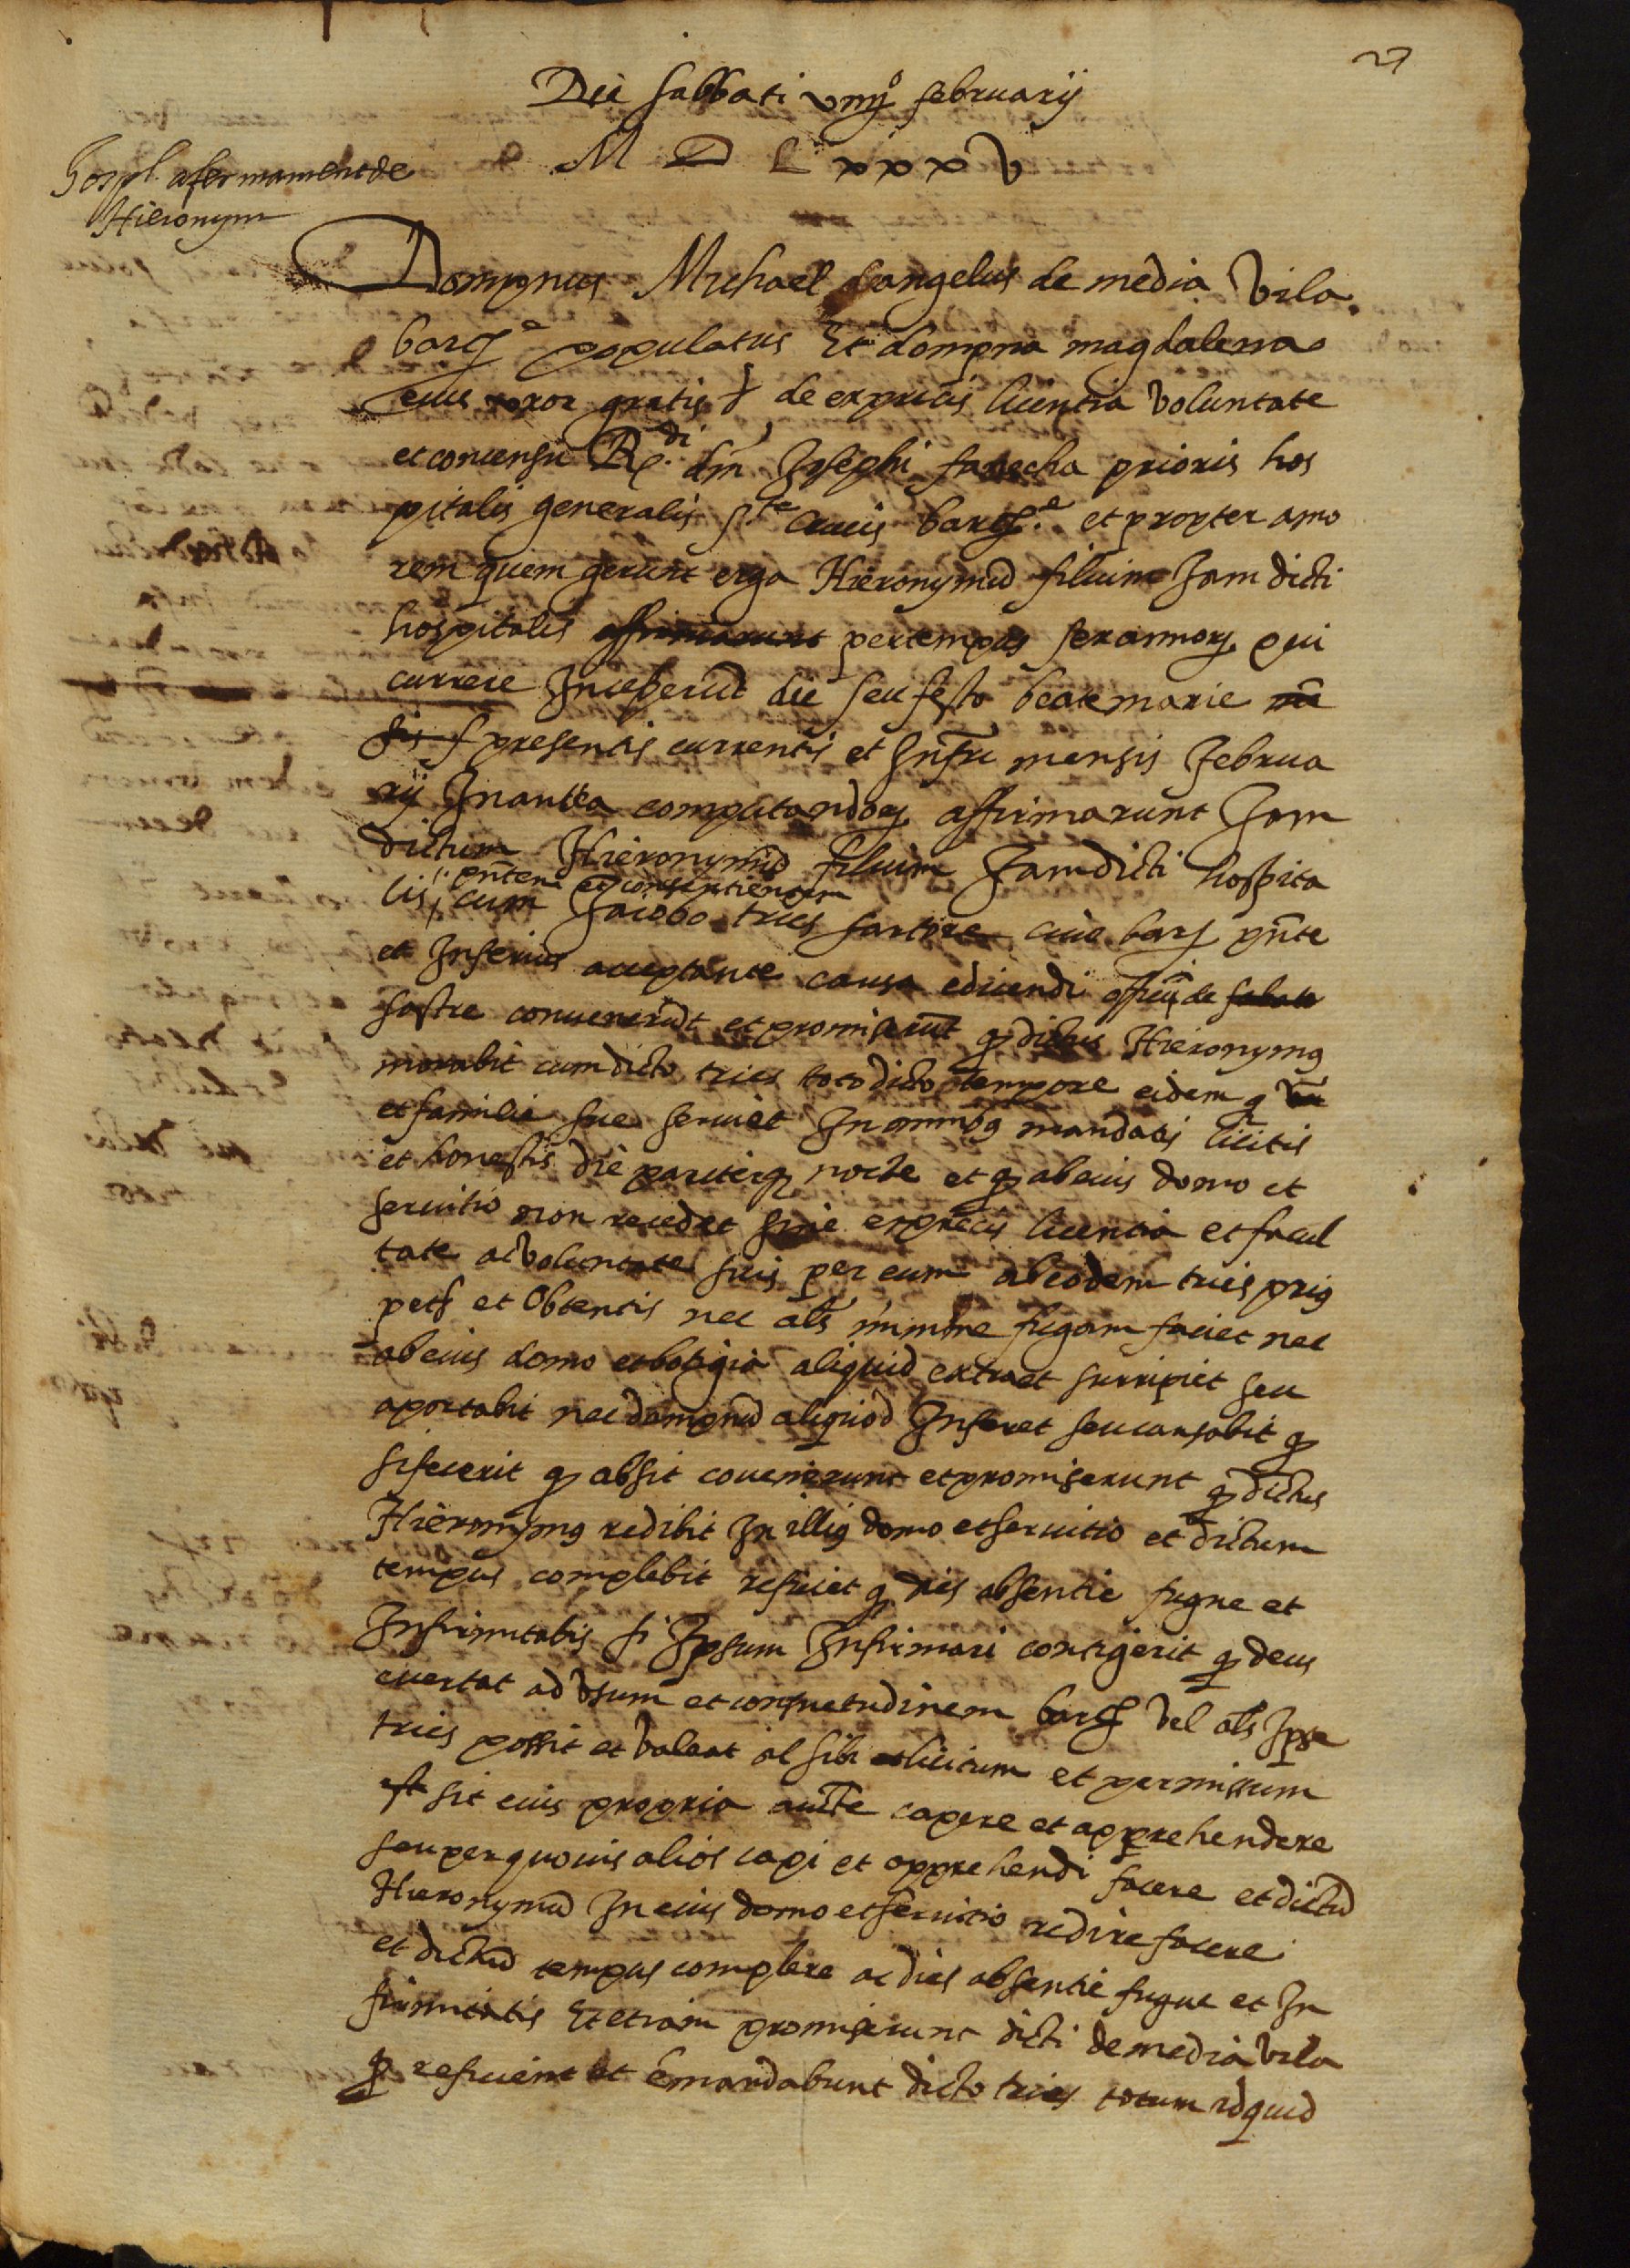 27
Die sabbati viiijº februarij
M D L xxxv
Hospl. afermament de
Hieronym
Dompnus Michael dangelus de media vila
barcª populatus Et dompna magdalena
eius uxor gratis & de expressis licentia voluntate
et concensu R.di dni Josephi farecha prioris hos
pitalis generalis Ste Crucis barcª et propter amo
rem quem gerunt erga Hieronymũ filium Jam dicti
hospitalis affirmarunt per tempus sex annorꝝ qui
currere Inceperũt die seu festo beate marie
presentis currentis et Infri mensis februa
rij Inantea computandorꝝ affirmarunt Jam
dictum Hieronymũ filium Jamdicti hospita
pñtem et consentientem
lis cum Jacobo tries sartore ciue barc pñte
et Inferius acceptante causa edicendi officiũ de sabate
sastre conuenerũt et promiserũt ꝙ dictus Hieronymꝰ
morabit cum dicto tries toto dicto tempore eidem q
et familie sue seruiet In omnibꝰ mandatis licitis
et honestis die pariterqꝫ nocte et ꝙ ab eius domo et
seruitio non recedet sine expressis licentia et facul
tate ac voluntate suis per eum ab eodem tries priꝰ
petS et obtentis nec als minime fugam faciet nec
ab eius domo et botigia aliquid extraet surripiet seu
aportabit nec dampnũ aliquod Inferet seu causabit ꝙ
si fecerit ꝙ absit conuenerunt et promiserunt ꝙ dictus
Hieronymꝰ redibit In illiꝰ domo et seruitio et dictum
tempus complebit reficiet q dies absentie fugne et
Infirmitatis si Ipsum Infirmari contigerit ꝙ deus
euertat ad vsum et consuetudinem barc vel als Ipse
tries possit et valeat ac sibi licitum et permissum
est sit eius propria aucte capere et apprehendere
seu per quouis alios capi et apprehendi facere et dictũ
Hieronymũ In eius domo et seruitio redire facere
et dictũ tempus complere ac dies absentie fugue et In
firmitatis Et etiam promiserunt dicti de media vila
ꝙ reficient et emandabunt dicto tries totum id quid